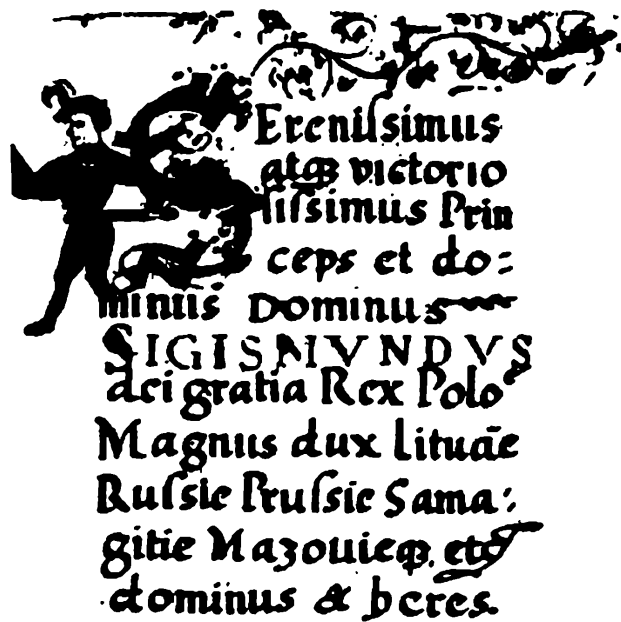 SErenissimus
atqꝫ victorio
sissimus Prin
ceps et do-
minus Dominus
SIGISMVNDVS
dei gratia Rex Poloᵉ
Magnus dux Lituāe
Russie Prussie Sama-
gitie Mazouieqꝫ etc
dominus & heres.